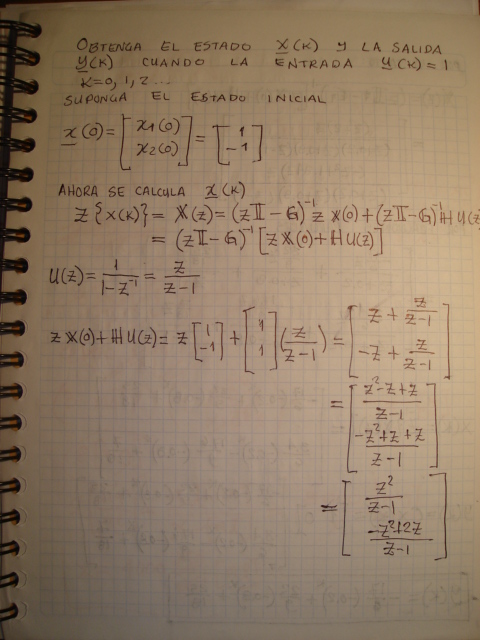 OBTENGA EL ESTADO x(k) Y LA SALIDA
y(k) CUANDO LA ENTRADA u(k) = 1
K=0, 1, 2...
SUPONGA EL ESTADO INICIAL
x(0) = [x1(0) x2(0)] = [1 -1]
AHORA SE CALCULA x(k)
Z{x(k)} = X(z) = (zI - G)⁻¹ z X(0) + (zI - G)⁻¹ H U(z)
= (zI - G)⁻¹ [z X(0) + H U(z)]
U(z) = 1/(1-z⁻¹) = z/(z-1)
z X(0) + H U(z) = z [1 -1] + [1 1] (z/(z-1)) = [z + z/(z-1) -z + z/(z-1)]
= [(z²-z+z)/(z-1) (-z²+z+z)/(z-1)]
= [z²/(z-1) (-z²+2z)/(z-1)]